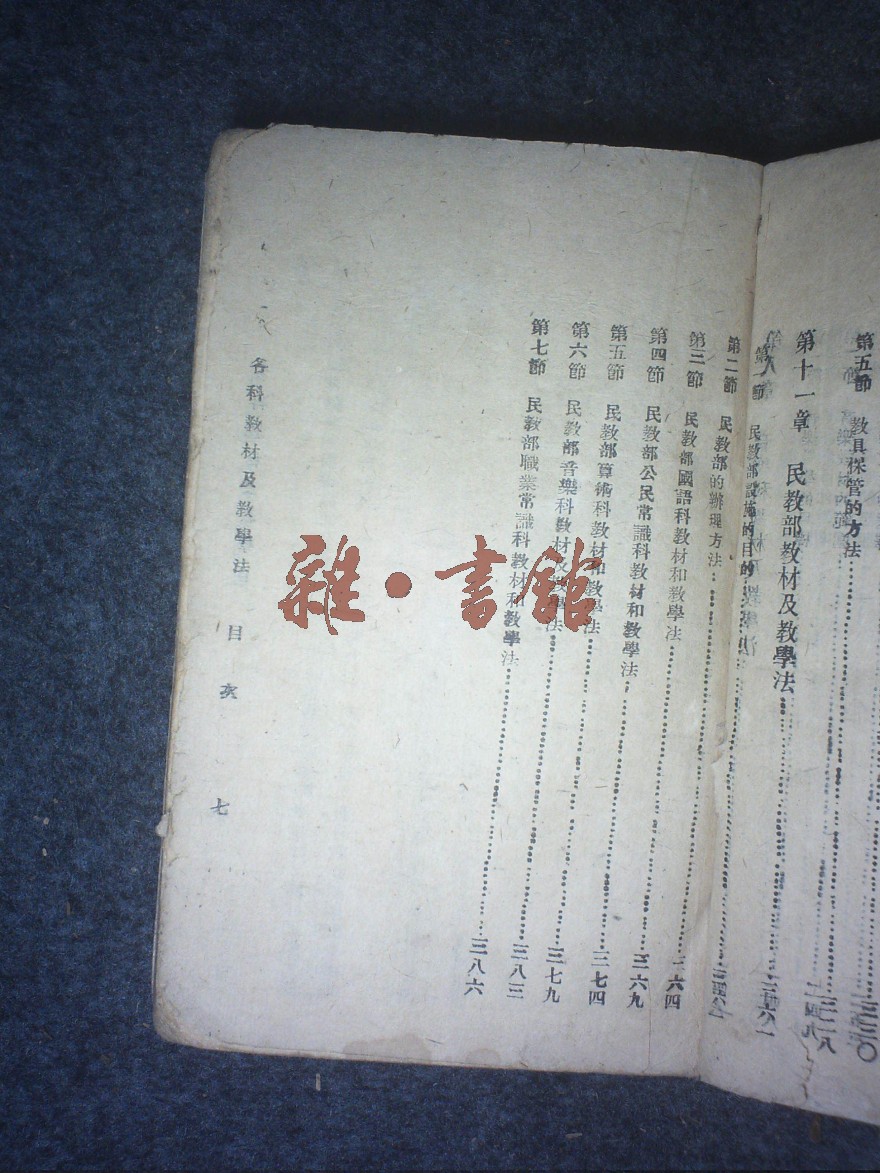 第五節 教具保管的方法
第十一章 民教部教材及教學法
第一節 民教部設施的目的
第二節 民教部的辦理方法
第三節 民教部國語科教材和教學法……三六四
第四節 民教部公民常識科教材和教學法……三六九
第五節 民教部算術科教材和教學法……三七四
第六節 民教部音樂科教材及教學法……三七九
第七節 民教部職業常識科教材和教學法……三八三
三八六
各科教材及教學法 目次 七
雜·書館